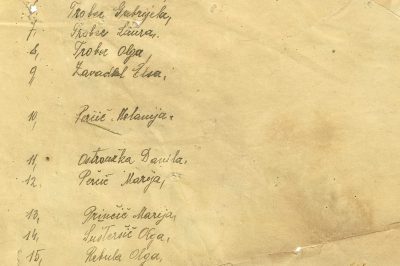 Trobec Gabrijela,
7, Trobec Laura,
8, Trobec Olga
9, Zavadlal Elsa,
10, Peršič Melanija,
11, Ostrouška Danila,
12. Peršič Marija,
13, Grinčič Marija,
14, Šušteršič Olga,
15, Rebula Olga,